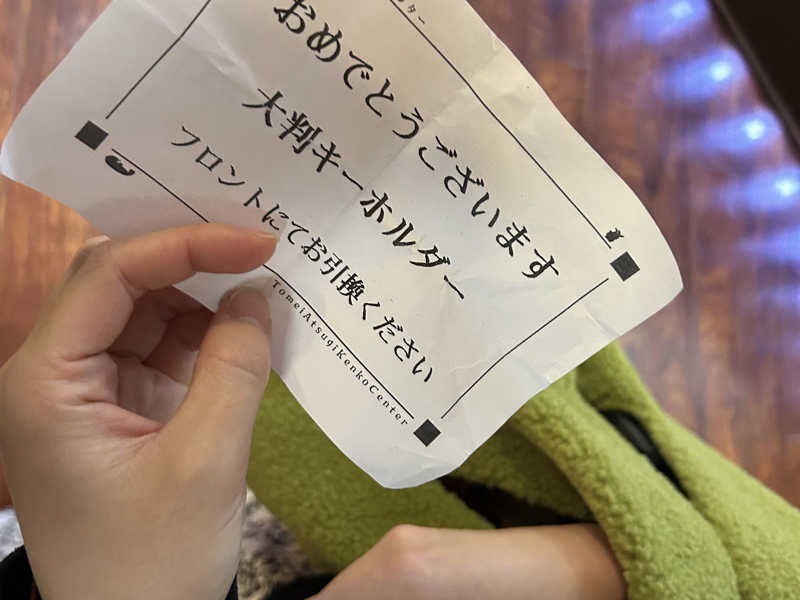 おめでとうございます
大判キーホルダー
フロントにてお引換ください
TomeiAtsugiKenkoCenter